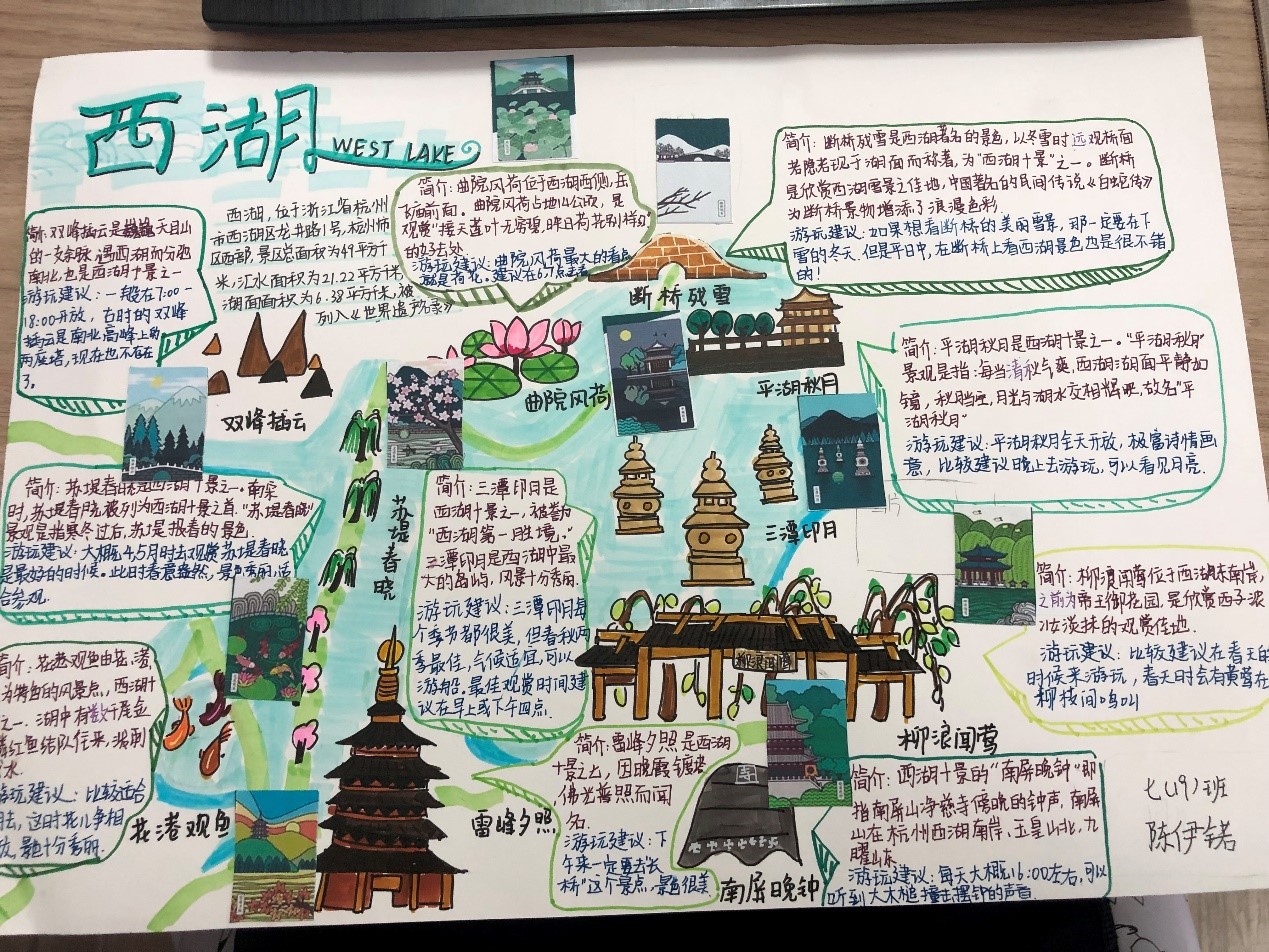 西湖
WEST LAKE
西湖，位于浙江省杭州
市西湖区龙井路1号，杭州市
区西部，景区总面积为49平方千
米，汇水面积为21.22平方千米，
湖面面积为6.38平方千米，被
列入《世界遗产名录》
简介：双峰插云是天目山
的一支余脉，遇西湖而分弛
南北，也是西湖十景之一
游玩建议：一般在7:00-
18:00开放，古时的双峰
插云是南北高峰上的
两座塔，现在也不存在
了。
双峰插云
简介：曲院风荷位于西湖西侧，岳
庙前面。曲院风荷占地14公顷，是
观赏“接天莲叶无穷碧，映日荷花别样红”
的好去处
游玩建议：曲院风荷最大的看点
就是荷花。建议在6.7点去看
曲院风荷
简介：断桥残雪是西湖著名的景色，以冬雪时远观桥面
若隐若现于湖面而称著，为“西湖十景”之一。断桥
是欣赏西湖雪景之佳地，中国著名的民间传说《白蛇传》
为断桥景物增添了浪漫色彩
游玩建议：如果想看断桥的美丽雪景，那一定要在下
雪的冬天，但是平日中，在断桥上看西湖景色也是很不错
的！
断桥残雪
简介：平湖秋月是西湖十景之一。“平湖秋月”
景观是指：每当清秋气爽，西湖湖面平静如
镜，秋月当空，月光与湖水交相辉映，故名“平
湖秋月”
游玩建议：平湖秋月全天开放，极富诗情画
意，比较建议晚上去游玩，可以看见月亮.
平湖秋月
简介：苏堤春晓是西湖十景之一.南宋
时，苏堤春晓被列为西湖十景之首.“苏堤春晓”
景观是指寒冬过后，苏堤报春的景色
游玩建议：大概4.5月时去观赏苏堤春晓
是最好的时候。此时春意盎然，景色秀丽，适
合参观.
苏堤春晓
简介：三潭印月是
西湖十景之一，被誉为
“西湖第一胜境”.
三潭印月是西湖中最
大的岛屿，风景十分秀丽.
游玩建议：三潭印月每
个季节都很美，但春秋两
季最佳，气候适宜，可以
游船，最佳观赏时间建
议在早上或下午四点.
三潭印月
简介：柳浪闻莺位于西湖东南岸，
之前为帝王御花园，是欣赏西子浓
妆淡抹的观赏佳地.
游玩建议：比较建议在春天的
时候来游玩，春天时会有黄莺在
柳枝间鸣叫
柳浪闻莺
简介：花港观鱼由花、港、
为特色的风景点，西湖十
之一.湖中有数千尾金
红鱼结队往来，泼剌
水.
游玩建议：比较适合
去，这时花儿争相
放，景色十分秀丽.
花港观鱼
简介：雷峰夕照是西湖
十景之一，因晚霞镀塔
佛光普照而闻
名.
游玩建议：下
午来一定要去长
桥”这个景点，景色很美
雷峰夕照
寺
南屏晚钟
简介：西湖十景的“南屏晚钟”即
指南屏山净慈寺傍晚的钟声，南屏
山在杭州西湖南岸，玉皇山北，九
曜山东
游玩建议：每天大概16:00左右，可以
听到大木槌撞击摆钟的声音
七（19）班
陈伊锘